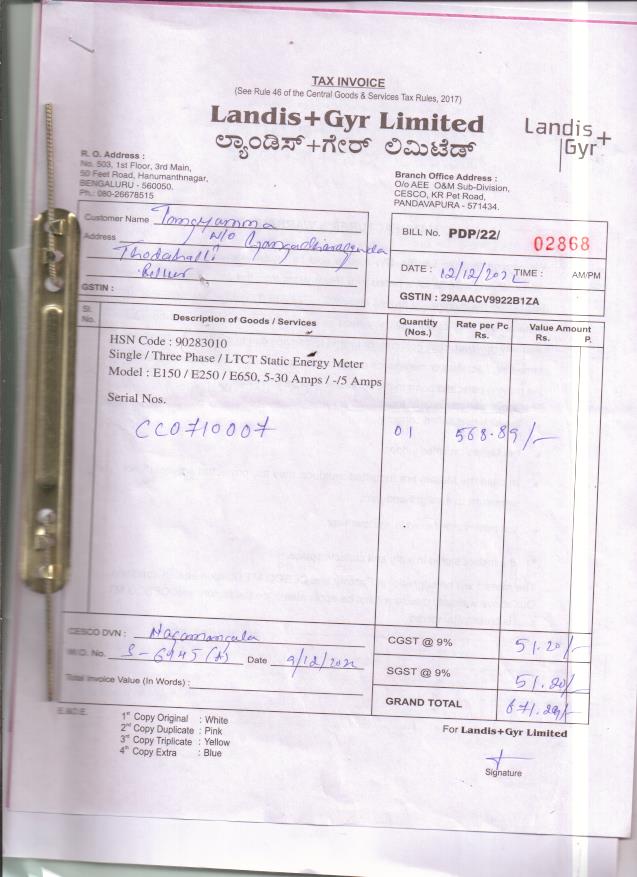 TAX INVOICE
(See Rule 46 of the Central Goods & Services Tax Rules, 2017)
Landis+Gyr Limited
ಲ್ಯಾಂಡಿಸ್+ಗೇರ್ ಲಿಮಿಟೆಡ್
Landis+
Gyr
R. O. Address :
No. 503, 1st Floor, 3rd Main,
50 Feet Road, Hanumanthnagar,
BENGALURU - 560050.
Ph.: 080-26678515
Branch Office Address :
O/o AEE O&M Sub-Division,
CESCO, KR Pet Road,
PANDAVAPURA - 571434.
Customer Name
Address W/O
GSTIN :
BILL No. PDP/22/ 02868
DATE : 12/12/2022 TIME : AM/PM
GSTIN : 29AAACV9922B1ZA
Sl. No. Description of Goods / Services Quantity (Nos.) Rate per Pc Rs. Value Amount Rs. P.
HSN Code : 90283010
Single / Three Phase / LTCT Static Energy Meter
Model : E150 / E250 / E650, 5-30 Amps / -/5 Amps
Serial Nos.
CC0710007 01 568.89/-
CESCO DVN : Nagamangala
M.O. No. Date 9/12/2022
Total Invoice Value (In Words) :
CGST @ 9% 51.20/-
SGST @ 9% 51.20/-
GRAND TOTAL 671.29/-
E.&O.E.
1st Copy Original : White
2nd Copy Duplicate : Pink
3rd Copy Triplicate : Yellow
4th Copy Extra : Blue
For Landis+Gyr Limited
Signature